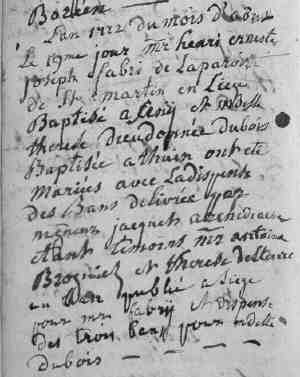 Barriere
L'an 1722 du mois d'aoust
Le 19me jour mr henri erneste
joseph fabri de la paroise
de St martin en Liege
Baptisé a et mdelle
therese dieudonnée dubois
Baptisée a thuin ont eté
Mariés avec la dispense
des Bans delivrée par
jacquet archidiacre
etant temoins mr antoine
et therese
un Ben publié a Liege
pour mr fabrij et dispense
des trois Bens pour mdelle
dubois